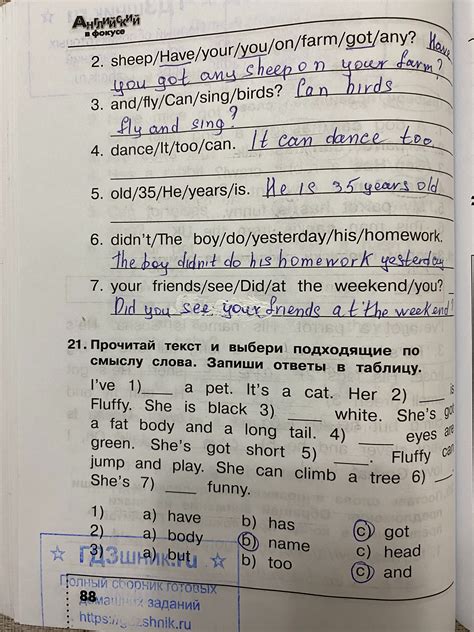 Английский
в фокусе
2. sheep/Have/your/you/on/farm/got/any? Have
you got any sheep on your farm?
3. and/fly/Can/sing/birds? Can birds
fly and sing?
4. dance/It/too/can. It can dance too
5. old/35/He/years/is. He is 35 years old
6. didn't/The boy/do/yesterday/his/homework.
The boy didn't do his homework yesterday
7. your friends/see/Did/at the weekend/you?
Did you see your friends at the weekend?
21. Прочитай текст и выбери подходящие по
смыслу слова. Запиши ответы в таблицу.
I've 1)___ a pet. It's a cat. Her 2) ___ is
Fluffy. She is black 3) ___ white. She's got
a fat body and a long tail. 4) ___ eyes are
green. She's got short 5) ___. Fluffy can
jump and play. She can climb a tree 6) ___.
She's 7) ___ funny.
1) a) have b) has c) got
2) a) body b) name c) head
3) a) but b) too c) and
ГДЗшник.ru
Полный сборник готовых
домашних заданий
88
https://gdzshnik.ru